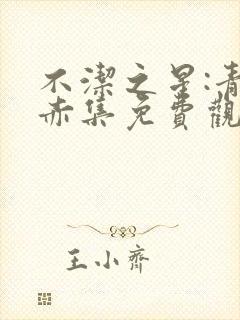 不潔之星:青
赤集免費觀
王小齊